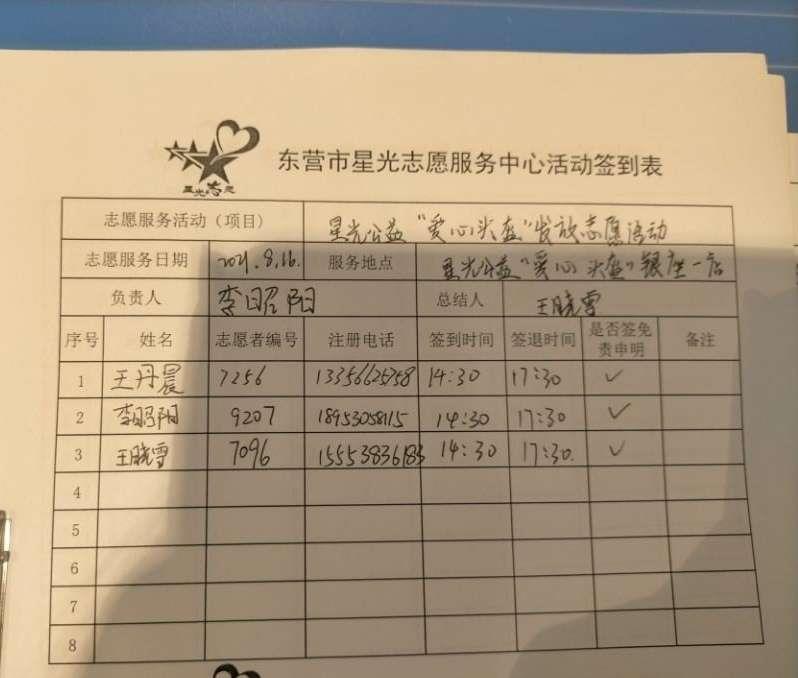 星光志愿
东营市星光志愿服务中心活动签到表
志愿服务活动（项目） 星光公益“爱心头盔”发放志愿活动
志愿服务日期 2021.8.16. 服务地点 星光公益“爱心头盔”银座一店
负责人 李昭阳 总结人 王晓雪
序号 姓名 志愿者编号 注册电话 签到时间 签退时间 是否签免责申明 备注
1 王丹晨 7256 13356625758 14:30 17:30 ✓
2 李昭阳 9207 18953058115 14:30 17:30 ✓
3 王晓雪 7096 15553836183 14:30 17:30. ✓
4
5
6
7
8